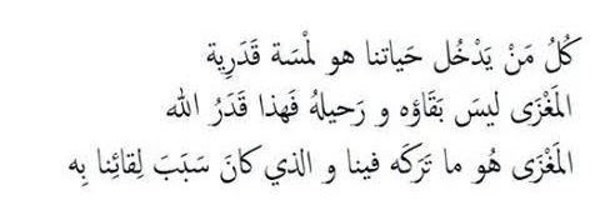 كُلُ مَنْ يَدْخُل حَياتنا هو لمْسَة قَدَرِية
المَغْزَى ليسَ بَقَاؤه و رَحيلهُ فَهذا قَدَرُ الله
المَغْزَى هُو ما تَرَكَه فينا و الذي كانَ سَبَبَ لِقائِنا بِه